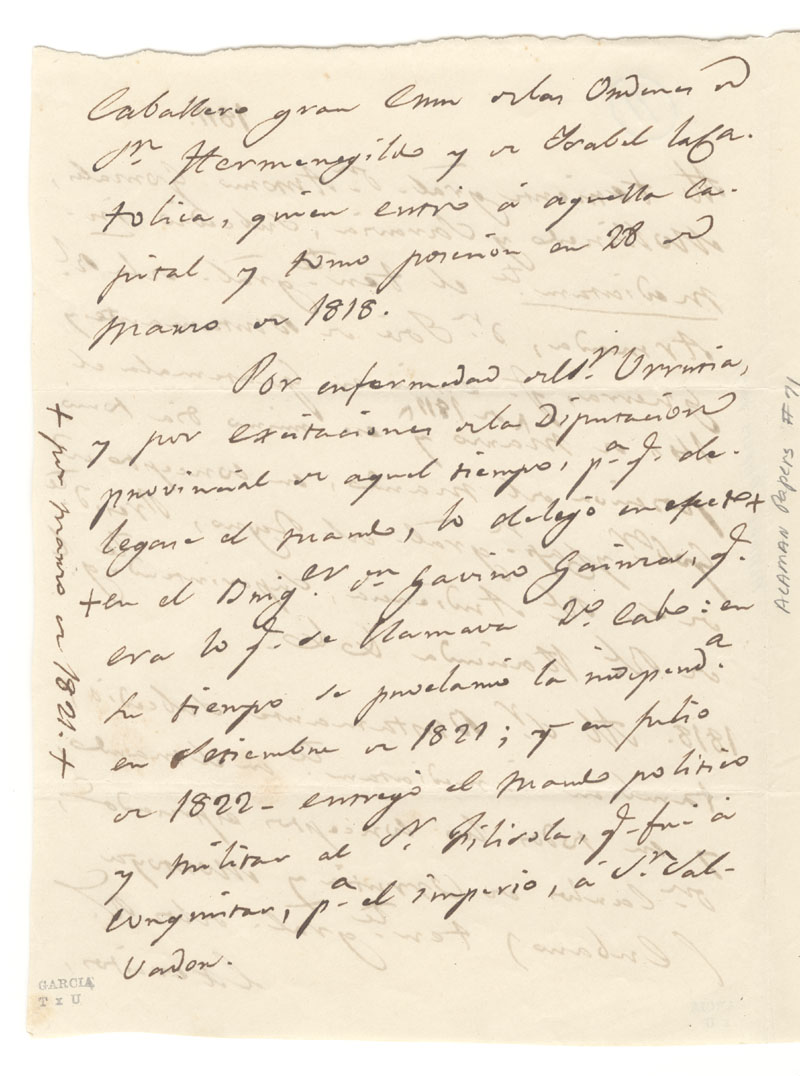 Caballero gran Cruz de las Ordenes de
Sn. Hermenegildo y de Isabel la Ca-
tolica, quien entró á aquella Ca-
pital y tomo posesion en 28 de
Marzo de 1818.
Por enfermedad del Sr. Urrutia,
y por excitaciones de la Diputacion
provincial de aquel tiempo, pa. q. de-
legase el mando, lo delegó en efecto +
+ en el Briger. Dn Gavino Gainza, q.
era lo q. se llamava 2o. Cabo: en
su tiempo se proclamó la independa.
en Setiembre de 1821; y en Julio
de 1822 - entregó el mando politico
y militar al Sr. Filisola, q. fué á
conquistar, pa. el imperio, á Sn. Sal-
vador.
+ por marzo de 1821. +
ALAMAN Papers #71
GARCIA
T x U